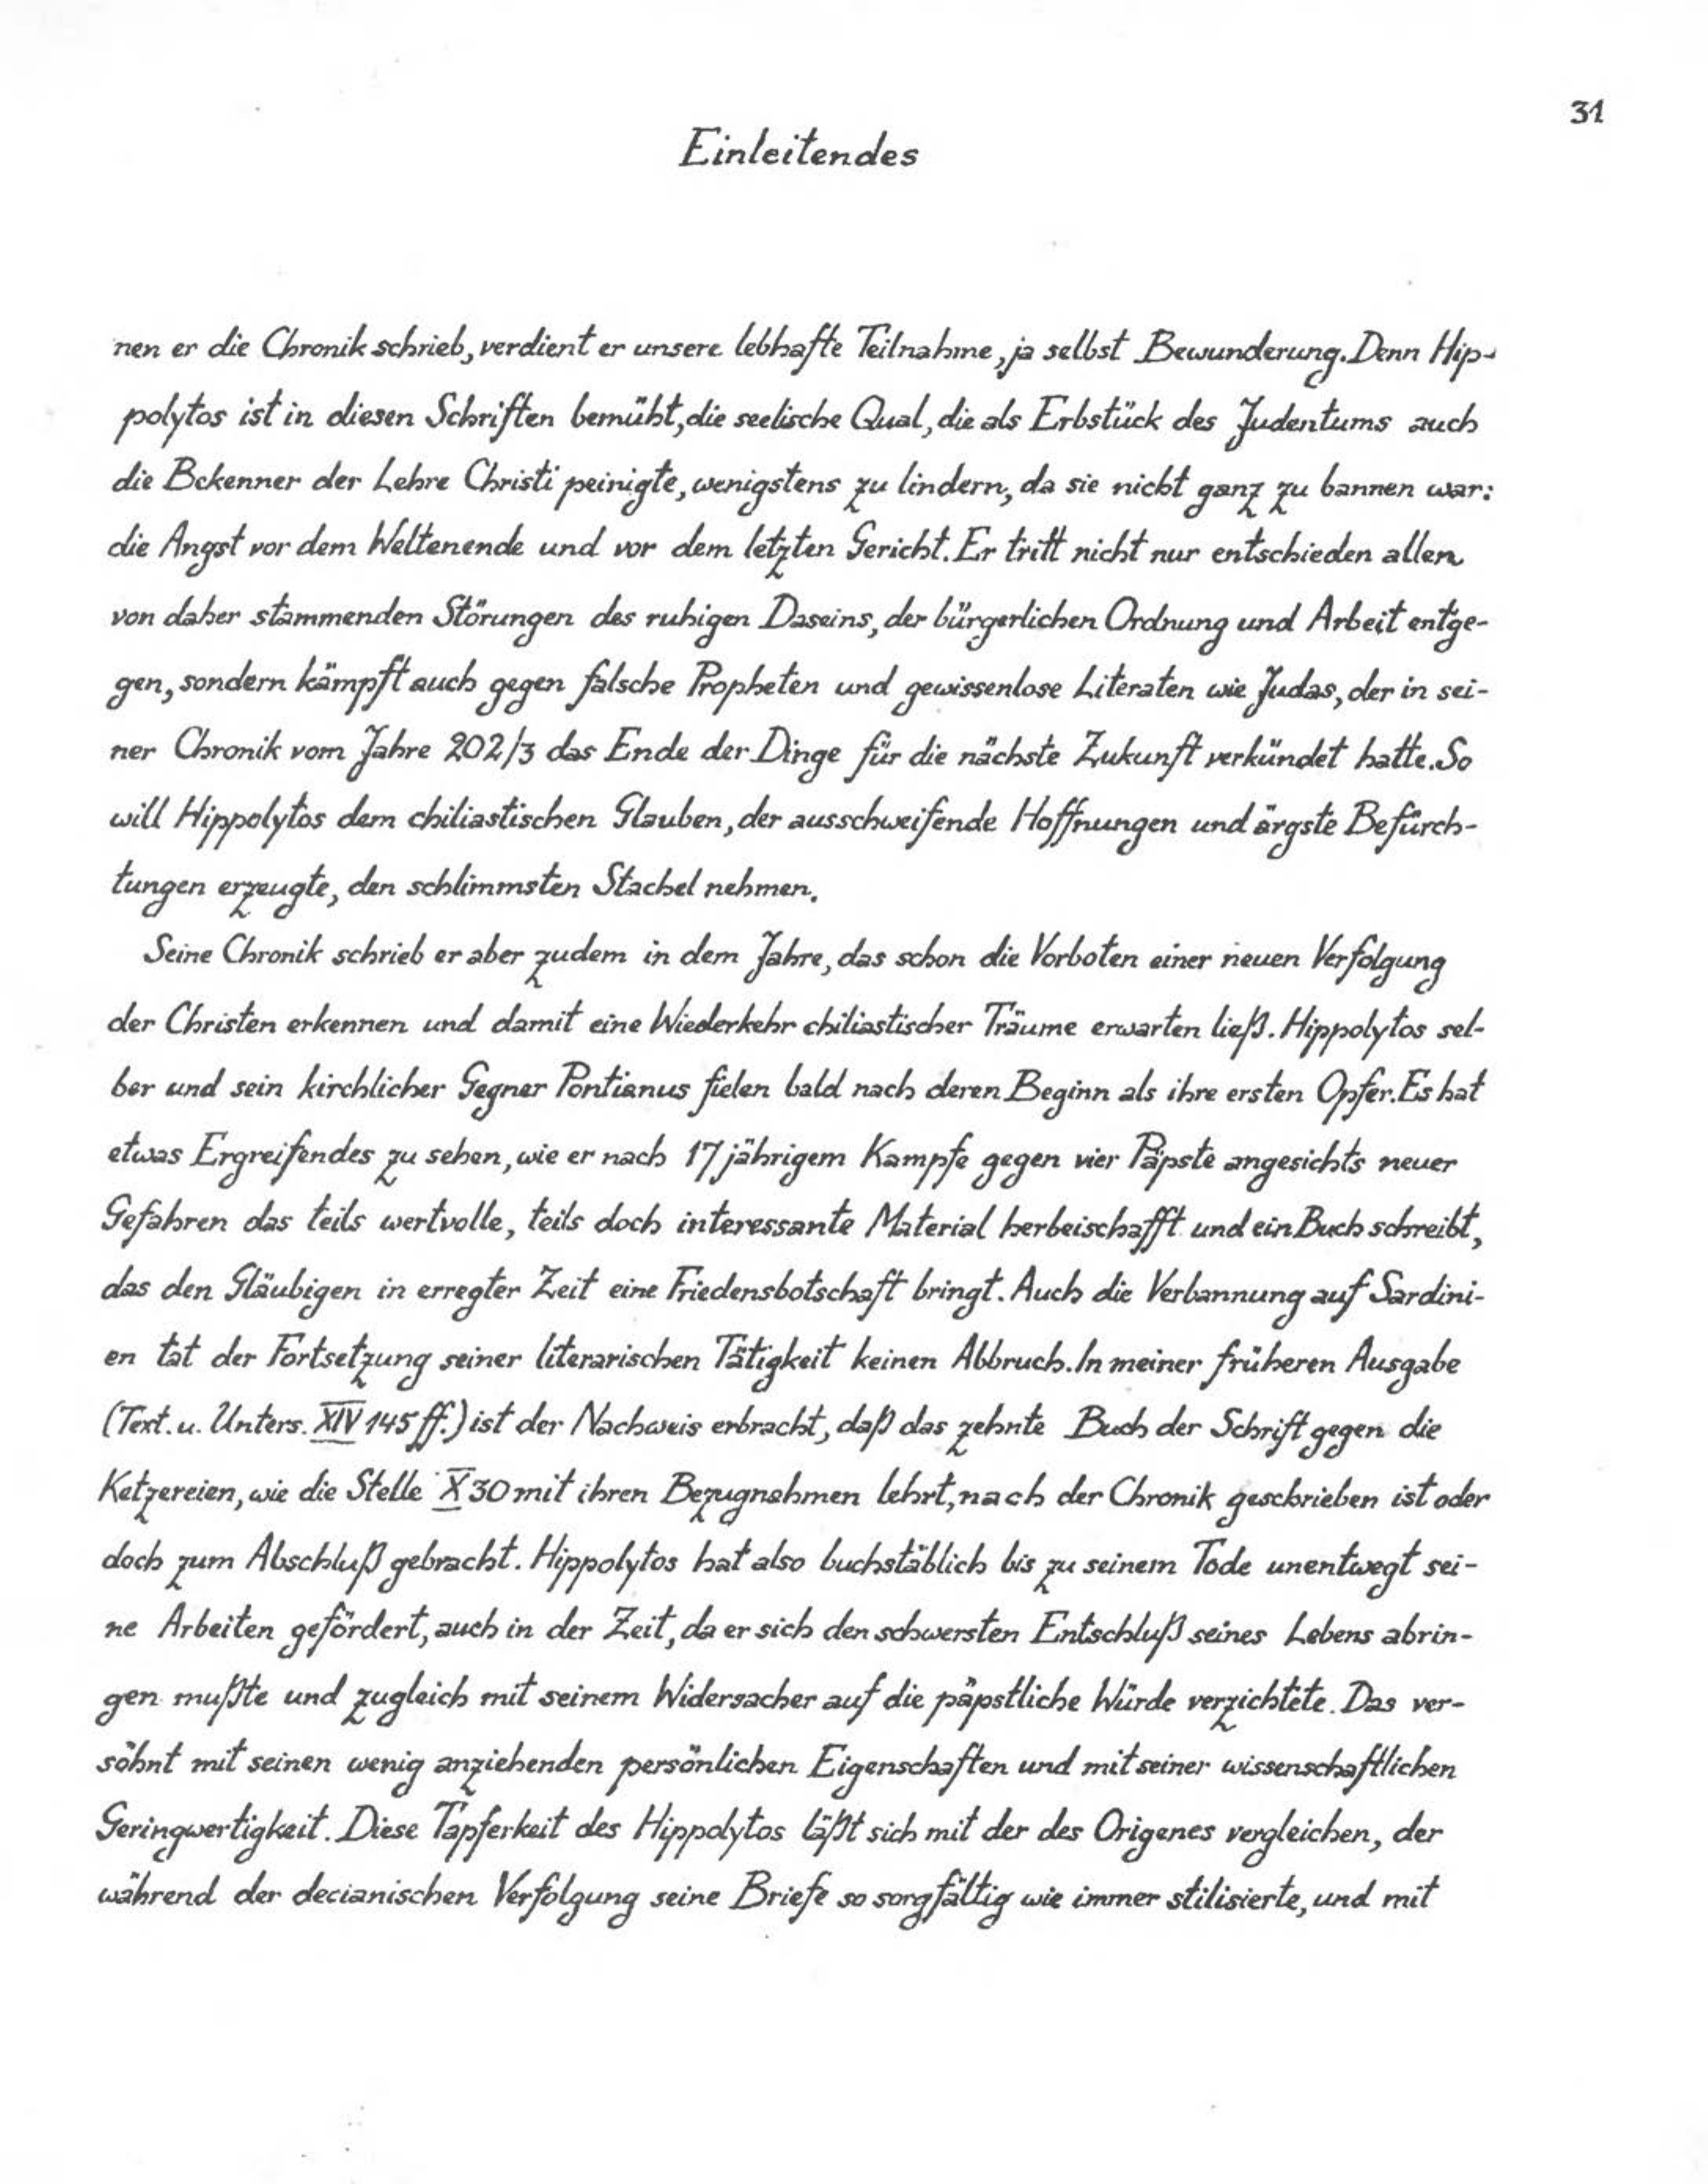 31
Einleitendes
nen er die Chronik schrieb, verdient er unsere lebhafte Teilnahme, ja selbst Bewunderung. Denn Hip-
polytos ist in diesen Schriften bemüht, die seelische Qual, die als Erbstück des Judentums auch
die Bekenner der Lehre Christi peinigte, wenigstens zu lindern, da sie nicht ganz zu bannen war:
die Angst vor dem Weltenende und vor dem letzten Gericht. Er tritt nicht nur entschieden allen
von daher stammenden Störungen des ruhigen Daseins, der bürgerlichen Ordnung und Arbeit entge-
gen, sondern kämpft auch gegen falsche Propheten und gewissenlose Literaten wie Judas, der in sei-
ner Chronik vom Jahre 202/3 das Ende der Dinge für die nächste Zukunft verkündet hatte. So
will Hippolytos dem chiliastischen Glauben, der ausschweifende Hoffnungen und ärgste Befürch-
tungen erzeugte, den schlimmsten Stachel nehmen.
Seine Chronik schrieb er aber zudem in dem Jahre, das schon die Vorboten einer neuen Verfolgung
der Christen erkennen und damit eine Wiederkehr chiliastischer Träume erwarten ließ. Hippolytos sel-
ber und sein kirchlicher Gegner Pontianus fielen bald nach deren Beginn als ihre ersten Opfer. Es hat
etwas Ergreifendes zu sehen, wie er nach 17jährigem Kampfe gegen vier Päpste angesichts neuer
Gefahren das teils wertvolle, teils doch interessante Material herbeischafft und ein Buch schreibt,
das den Gläubigen in erregter Zeit eine Friedensbotschaft bringt. Auch die Verbannung auf Sardini-
en tat der Fortsetzung seiner literarischen Tätigkeit keinen Abbruch. In meiner früheren Ausgabe
(Text. u. Unters. XIV 145 ff.) ist der Nachweis erbracht, daß das zehnte Buch der Schrift gegen die
Ketzereien, wie die Stelle X 30 mit ihren Bezugnahmen lehrt, nach der Chronik geschrieben ist oder
doch zum Abschluß gebracht. Hippolytos hat also buchstäblich bis zu seinem Tode unentwegt sei-
ne Arbeiten gefördert, auch in der Zeit, da er sich den schwersten Entschluß seines Lebens abrin-
gen mußte und zugleich mit seinem Widersacher auf die päpstliche Würde verzichtete. Das ver-
söhnt mit seinen wenig anziehenden persönlichen Eigenschaften und mit seiner wissenschaftlichen
Geringwertigkeit. Diese Tapferkeit des Hippolytos läßt sich mit der des Origenes vergleichen, der
während der decianischen Verfolgung seine Briefe so sorgfältig wie immer stilisierte, und mit